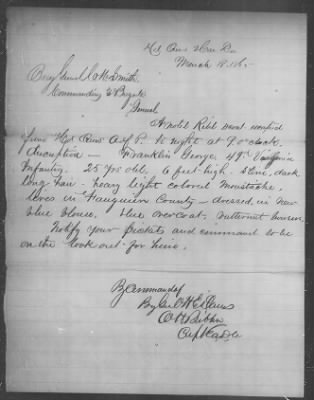 Hd Qrs
March 18. 186
Smith
Commanding Brigade
General
A noted Rebel scout escaped
from Hd Qrs A of P. to night at 9. o clock
description — Franklin George, 49th Virginia
Infantry. 25 yrs old. 6 feet high. Slim, dark
long hair — heavy light colored Moustache,
lives in Fauquier County — dressed in new
blue blouse, blue overcoat, butternut trousers.
Notify your pickets and command to be
on the look out for him.
By command of
O. H.